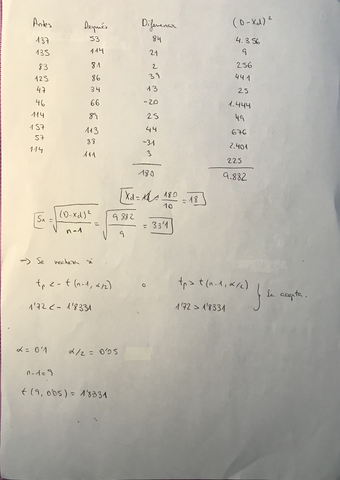 Antes Después Diferencia (D-X̄d)²
137 53 84 4.356
135 114 21 9
83 81 2 256
125 86 39 441
47 34 13 25
46 66 -20 1.444
114 89 25 49
157 113 44 676
57 88 -31 2.401
114 111 3 225
180 9.882
X̄d = 180/10 = 18
Sn = √(D-X̄d)²/n-1 = √9.882/9 = 33'1
→ Se rechaza si
tp < -t (n-1, α/2) o tp > t (n-1, α/2)
1'72 < -1'8331 1'72 > 1'8331 } Se acepta.
α = 0'1 α/2 = 0'05
n-1 = 9
t (9, 0'05) = 1'8331